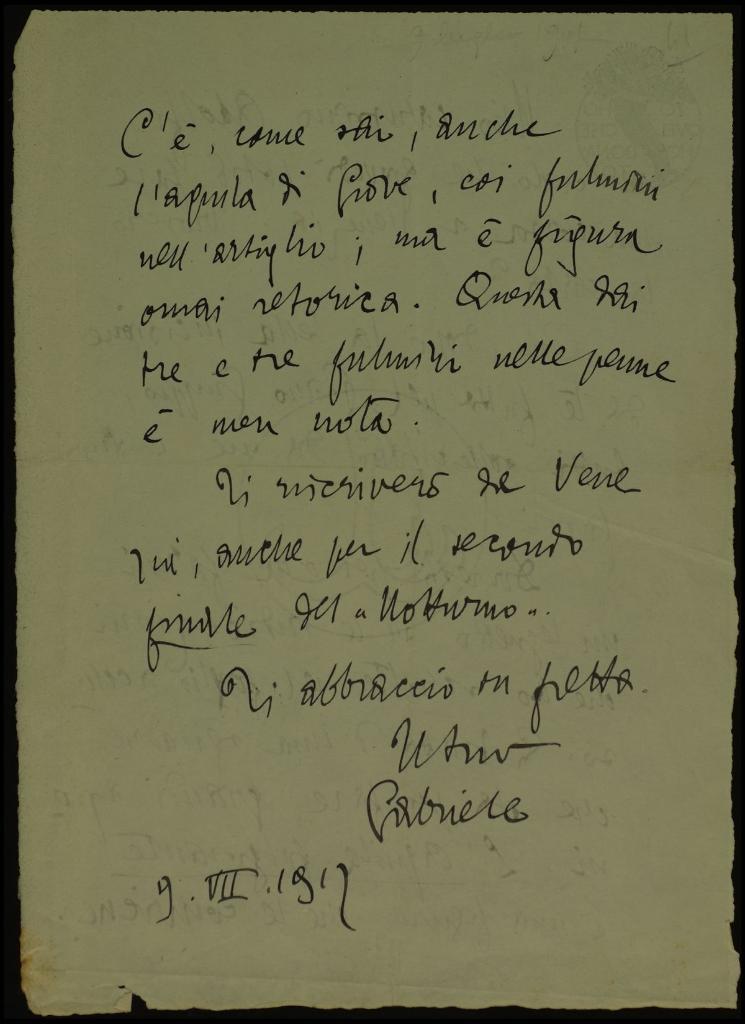 C'è, come sai, anche
l'aquila di Giove, coi fulmini
nell'artiglio; ma è figura
omai retorica. Questa dai
tre e tre fulmini nelle penne
è men nota.
Ti riscriverò da Vene
zia, anche per il secondo
finale del "Notturno".
Ti abbraccio in fretta.
Il tuo
Gabriele
9. VII. 1917